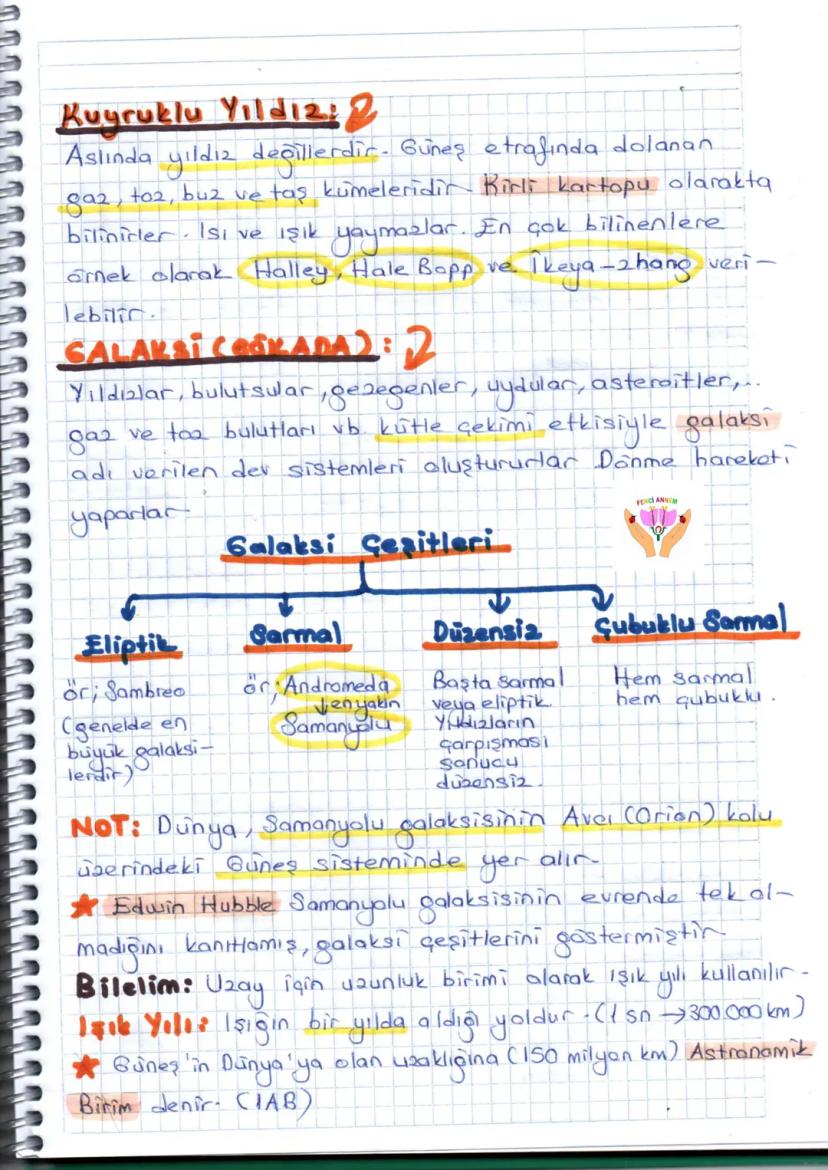 Kuyruklu Yıldız:
Aslında yıldız değillerdir. Güneş etrafında dolanan
gaz, toz, buz ve taş kümeleridir. Kirli kartopu olarakta
bilinirler. Isı ve ışık yaymazlar. En çok bilinenlere
örnek olarak Halley, Hale Bopp ve İkeya-zhang veri-
lebilir.
GALAKSİ (GÖKADA):
Yıldızlar, bulutsular, gezegenler, uydular, asteroitler,...
gaz ve toz bulutları vb. kütle çekimi etkisiyle galaksi
adı verilen dev sistemleri oluştururlar Dönme hareketi
yaparlar
FENCİ ANNEM
Galaksi Çeşitleri
Eliptik
ör; Sombreo
(genelde en
büyük galaksi-
lerdir)
Sarmal
ör; Andromeda
en yakın
Samanyolu
Düzensiz
Başta sarmal
veya eliptik
Yıldızların
çarpışması
sonucu
düzensiz.
Çubuklu Sarmal
Hem sarmal
hem çubuklu.
NOT: Dünya, Samanyolu galaksisinin Avcı (Orion) kolu
üzerindeki Güneş sisteminde yer alır
★ Edwin Hubble Samanyolu galaksisinin evrende tek ol-
madığını kanıtlamış, galaksi çeşitlerini göstermiştir
Bilelim: Uzay için uzunluk birimi olarak ışık yılı kullanılır.
Işık Yılı: Işığın bir yılda aldığı yoldur. (1 sn → 300.000 km)
★ Güneş'in Dünya'ya olan uzaklığına (150 milyon km) Astronomik
Birim denir. (1AB)